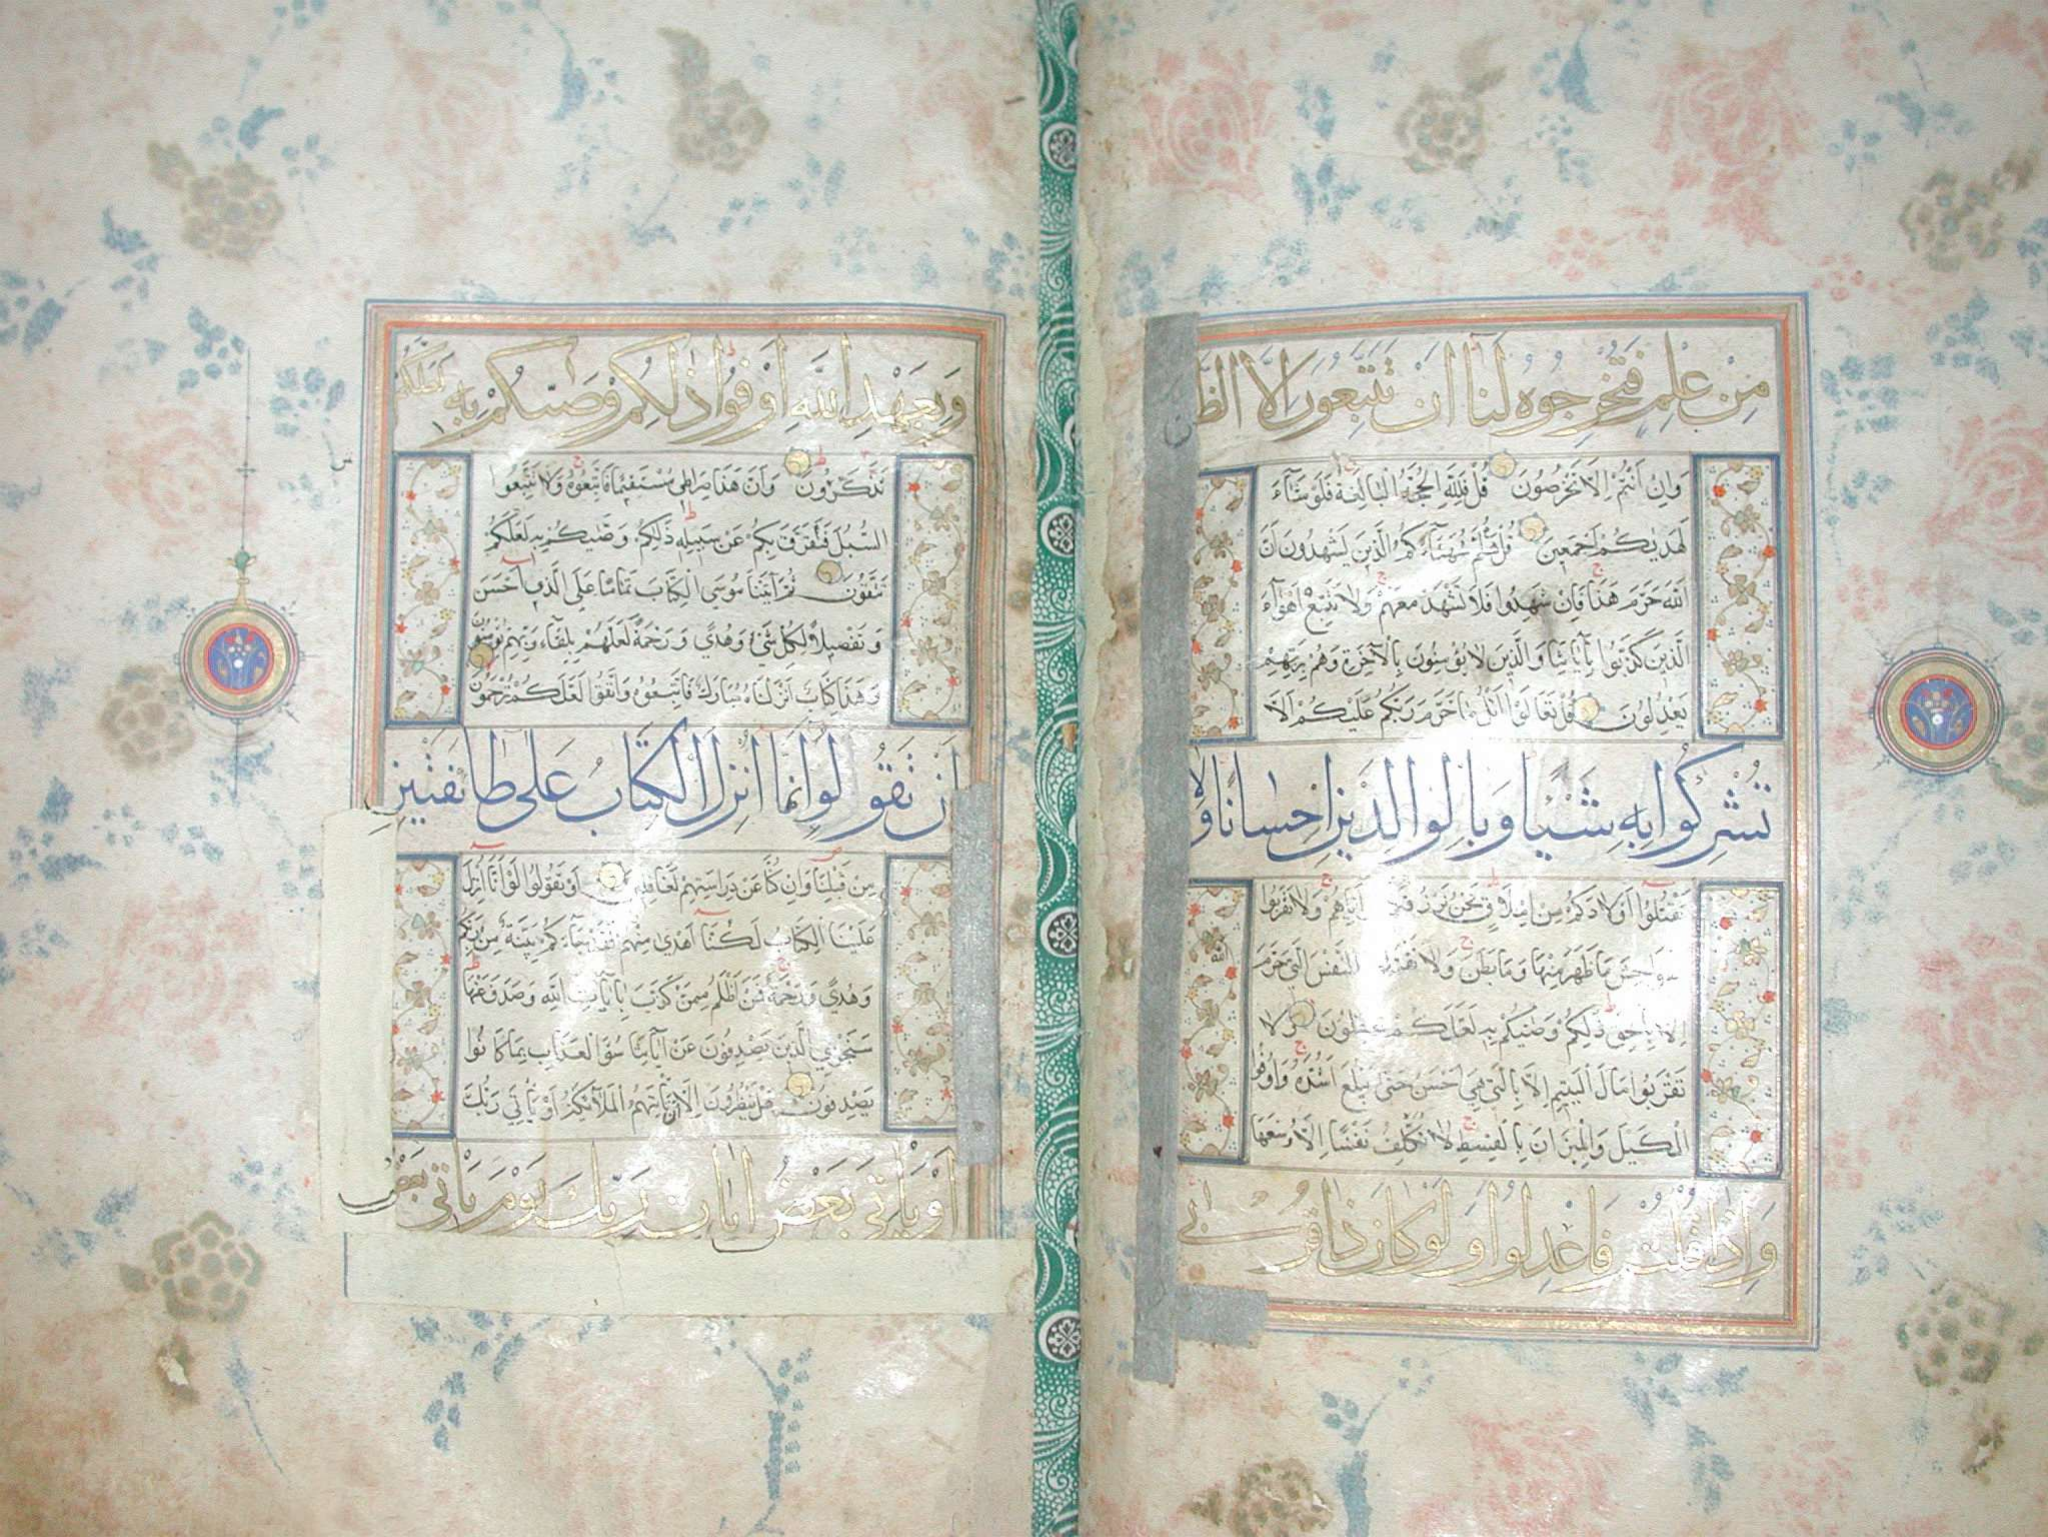 مِنْ عِلْمٍ فَتُخْرِجُوهُ لَنَا اَنْ تَتَّبِعُونَ اِلَّا الظَّ
وَاِنْ اَنْتُمْ اِلَّا تَخْرُصُونَ قُلْ فَلِلّٰهِ الْحُجَّةُ الْبَالِغَةُ فَلَوْ شَآءَ
لَهَدٰيكُمْ اَجْمَعِينَ قُلْ هَلُمَّ شُهَدَآءَكُمُ الَّذِينَ يَشْهَدُونَ اَنَّ
اللّٰهَ حَرَّمَ هٰذَا فَاِنْ شَهِدُوا فَلَا تَشْهَدْ مَعَهُمْ وَلَا تَتَّبِعْ اَهْوَآءَ
الَّذِينَ كَذَّبُوا بِاٰيَاتِنَا وَالَّذِينَ لَا يُؤْمِنُونَ بِالْاٰخِرَةِ وَهُمْ بِرَبِّهِمْ
يَعْدِلُونَ قُلْ تَعَالَوْا اَتْلُ مَا حَرَّمَ رَبُّكُمْ عَلَيْكُمْ اَلَّا
تُشْرِكُوا بِهِ شَيْئًا وَبِالْوَالِدَيْنِ اِحْسَانًا وَلَا
تَقْتُلُوا اَوْلَادَكُمْ مِنْ اِمْلَاقٍ نَحْنُ نَرْزُقُكُمْ وَاِيَّاهُمْ وَلَا تَقْرَبُوا
الْفَوَاحِشَ مَا ظَهَرَ مِنْهَا وَمَا بَطَنَ وَلَا تَقْتُلُوا النَّفْسَ الَّتِي حَرَّمَ اللّٰهُ
اِلَّا بِالْحَقِّ ذٰلِكُمْ وَصّٰيكُمْ بِهِ لَعَلَّكُمْ تَعْقِلُونَ وَلَا
تَقْرَبُوا مَالَ الْيَتِيمِ اِلَّا بِالَّتِي هِيَ اَحْسَنُ حَتّٰى يَبْلُغَ اَشُدَّهُ وَاَوْفُوا
الْكَيْلَ وَالْمِيزَانَ بِالْقِسْطِ لَا نُكَلِّفُ نَفْسًا اِلَّا وُسْعَهَا
وَاِذَا قُلْتُمْ فَاعْدِلُوا وَلَوْ كَانَ ذَا قُرْبٰى
وَبِعَهْدِ اللّٰهِ اَوْفُوا ذٰلِكُمْ وَصّٰيكُمْ بِهِ لَعَلَّكُمْ
تَذَكَّرُونَ وَاَنَّ هٰذَا صِرَاطِي مُسْتَقِيمًا فَاتَّبِعُوهُ وَلَا تَتَّبِعُوا
السُّبُلَ فَتَفَرَّقَ بِكُمْ عَنْ سَبِيلِهِ ذٰلِكُمْ وَصّٰيكُمْ بِهِ لَعَلَّكُمْ
تَتَّقُونَ ثُمَّ اٰتَيْنَا مُوسَى الْكِتَابَ تَمَامًا عَلَى الَّذِي اَحْسَنَ
وَتَفْصِيلًا لِكُلِّ شَيْءٍ وَهُدًى وَرَحْمَةً لَعَلَّهُمْ بِلِقَآءِ رَبِّهِمْ يُؤْمِنُونَ
وَهٰذَا كِتَابٌ اَنْزَلْنَاهُ مُبَارَكٌ فَاتَّبِعُوهُ وَاتَّقُوا لَعَلَّكُمْ تُرْحَمُونَ
اَنْ تَقُولُوا اِنَّمَا اُنْزِلَ الْكِتَابُ عَلٰى طَائِفَتَيْنِ
مِنْ قَبْلِنَا وَاِنْ كُنَّا عَنْ دِرَاسَتِهِمْ لَغَافِلِينَ اَوْ تَقُولُوا لَوْ اَنَّا اُنْزِلَ
عَلَيْنَا الْكِتَابُ لَكُنَّا اَهْدٰى مِنْهُمْ فَقَدْ جَآءَكُمْ بَيِّنَةٌ مِنْ رَبِّكُمْ
وَهُدًى وَرَحْمَةٌ فَمَنْ اَظْلَمُ مِمَّنْ كَذَّبَ بِاٰيَاتِ اللّٰهِ وَصَدَفَ عَنْهَا
سَنَجْزِي الَّذِينَ يَصْدِفُونَ عَنْ اٰيَاتِنَا سُوٓءَ الْعَذَابِ بِمَا كَانُوا
يَصْدِفُونَ هَلْ يَنْظُرُونَ اِلَّا اَنْ تَأْتِيَهُمُ الْمَلَآئِكَةُ اَوْ يَأْتِيَ رَبُّكَ
اَوْ يَأْتِيَ بَعْضُ اٰيَاتِ رَبِّكَ يَوْمَ يَأْتِي بَعْضُ